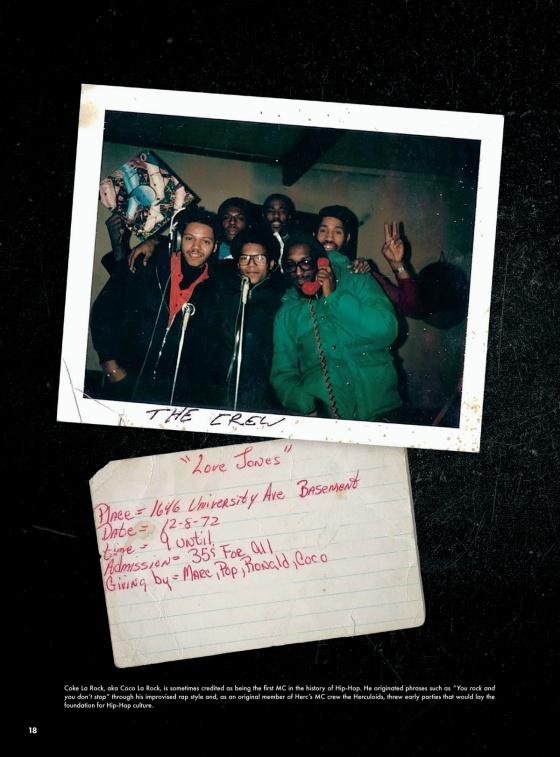 THE CREW
"Love Jones"
Place = 1646 University Ave Basement
Date = 12-8-72
time = 9 until
Admission = 35¢ For All
Giving by = Marc, Pop, Ronald, Coco
Coke La Rock, aka Coco La Rock, is sometimes credited as being the first MC in the history of Hip-Hop. He originated phrases such as "You rock and
you don't stop" through his improvised rap style and, as an original member of Herc's MC crew the Herculoids, threw early parties that would lay the
foundation for Hip-Hop culture.
18